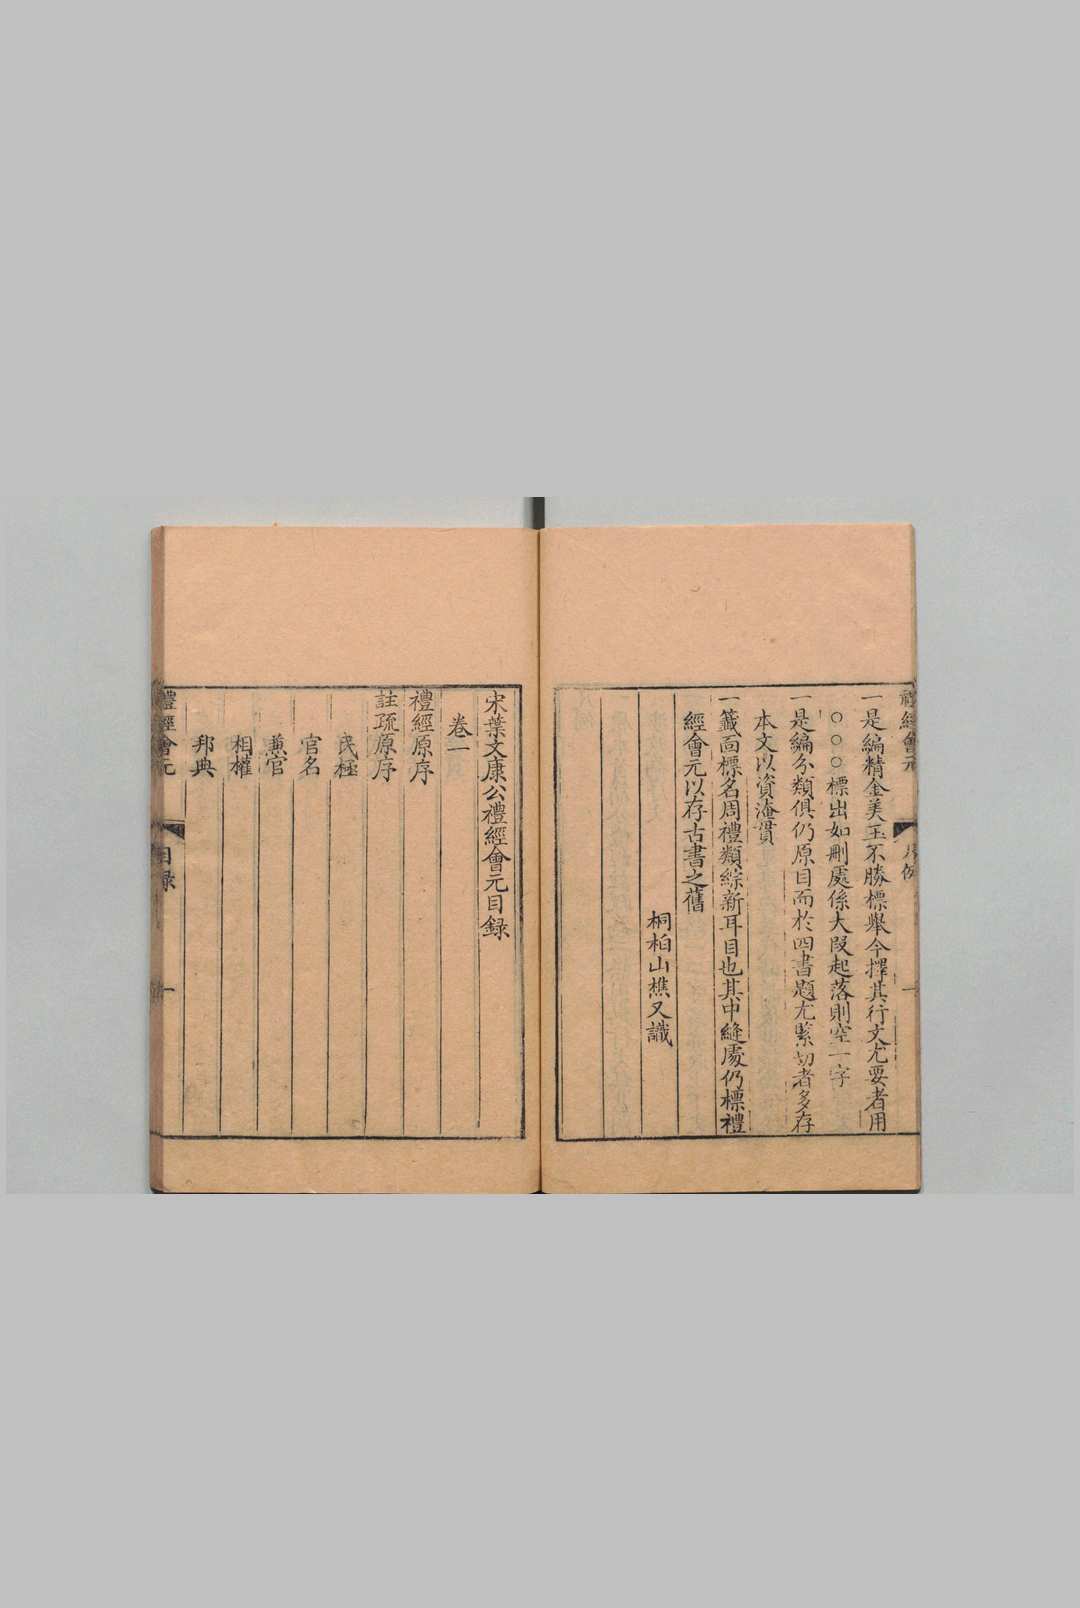 一是編精金美玉不勝標舉今擇其行文尤要者用
○○○標出如刪處係大段起落則空一字
一是編分類俱仍原目而於四書題尤緊切者多存
本文以資淹貫
一籤面標名周禮類綜新耳目也其中縫處仍標禮
經會元以存古書之舊
桐柏山樵又識
宋葉文康公禮經會元目録
卷一
禮經原序
註疏原序
民極
官名
兼官
相權
邦典
禮經會元
目録
一